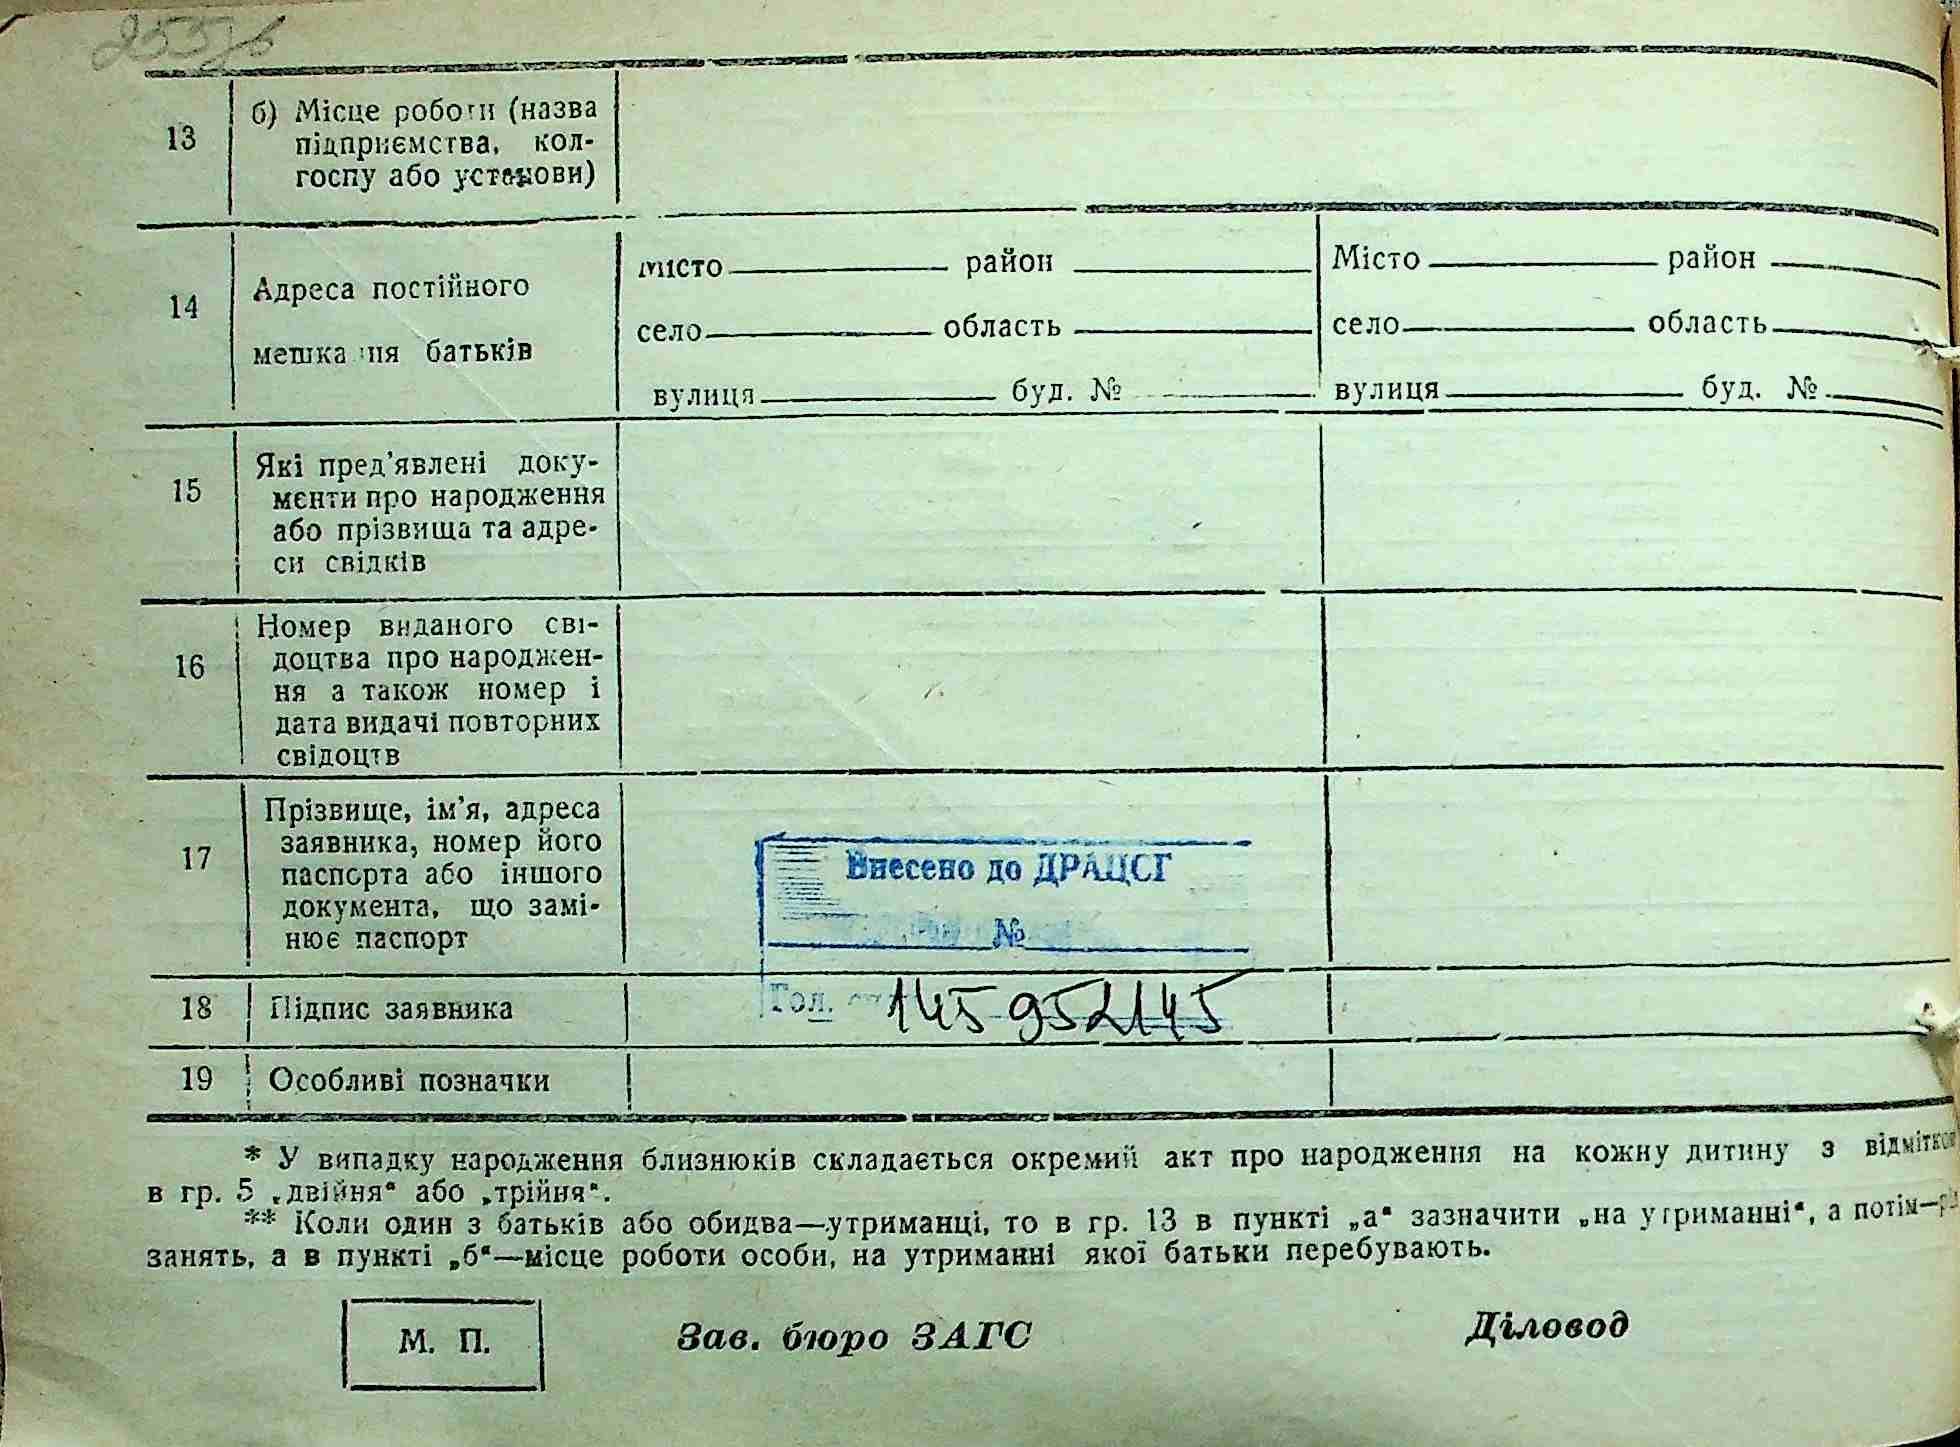 13
б) Місце роботи (назва
підприємства, кол-
госпу або установи)
14
Адреса постійного
мешкання батьків
місто район
село область
вулиця буд. №
Місто район
село область
вулиця буд. №
15
Які пред'явлені доку-
менти про народження
або прізвища та адре-
си свідків
16
Номер виданого сві-
доцтва про народжен-
ня а також номер і
дата видачі повторних
свідоцтв
17
Прізвище, ім'я, адреса
заявника, номер його
паспорта або іншого
документа, що замі-
нює паспорт
Внесено до ДРАЦСГ
№
18
Підпис заявника
Гол.
145952145
19
Особливі позначки
* У випадку народження близнюків складається окремий акт про народження на кожну дитину з відміткою
в гр. 5 „двійня“ або „трійня“.
** Коли один з батьків або обидва—утриманці, то в гр. 13 в пункті „а“ зазначити „на утриманні“, а потім—
занять, а в пункті „б“—місце роботи особи, на утриманні якої батьки перебувають.
М. П.
Зав. бюро ЗАГС
Діловод